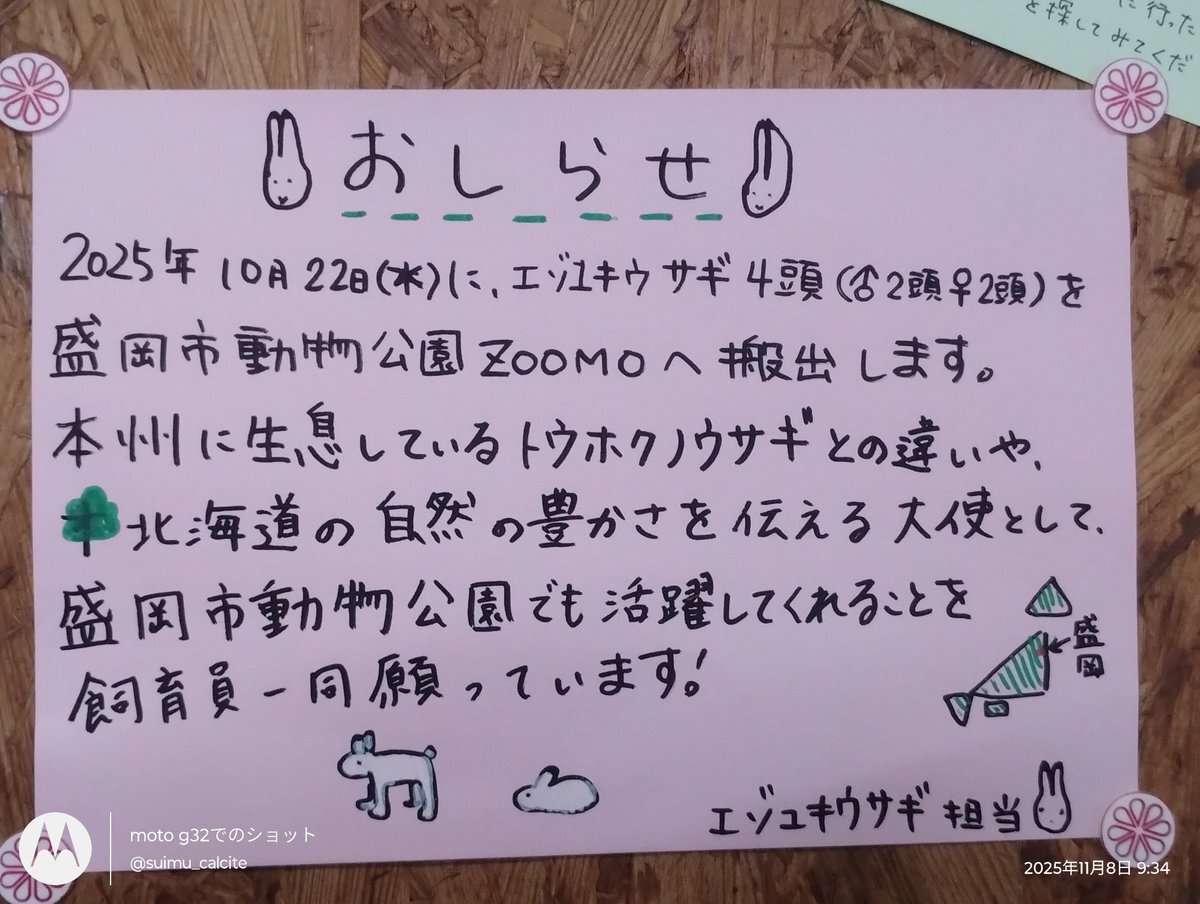 に行った
を探してみてくだ
おしらせ
2025年10月22日(水)に、エゾユキウサギ4頭(♂2頭♀2頭)を
盛岡市動物公園ZOOMOへ搬出します。
本州に生息しているトウホクノウサギとの違いや、
北海道の自然の豊かさを伝える大使として、
盛岡市動物公園でも活躍してくれることを
飼育員一同願っています!
盛岡
エゾユキウサギ担当
moto g32でのショット
@suimu_calcite
2025年11月8日 9:34